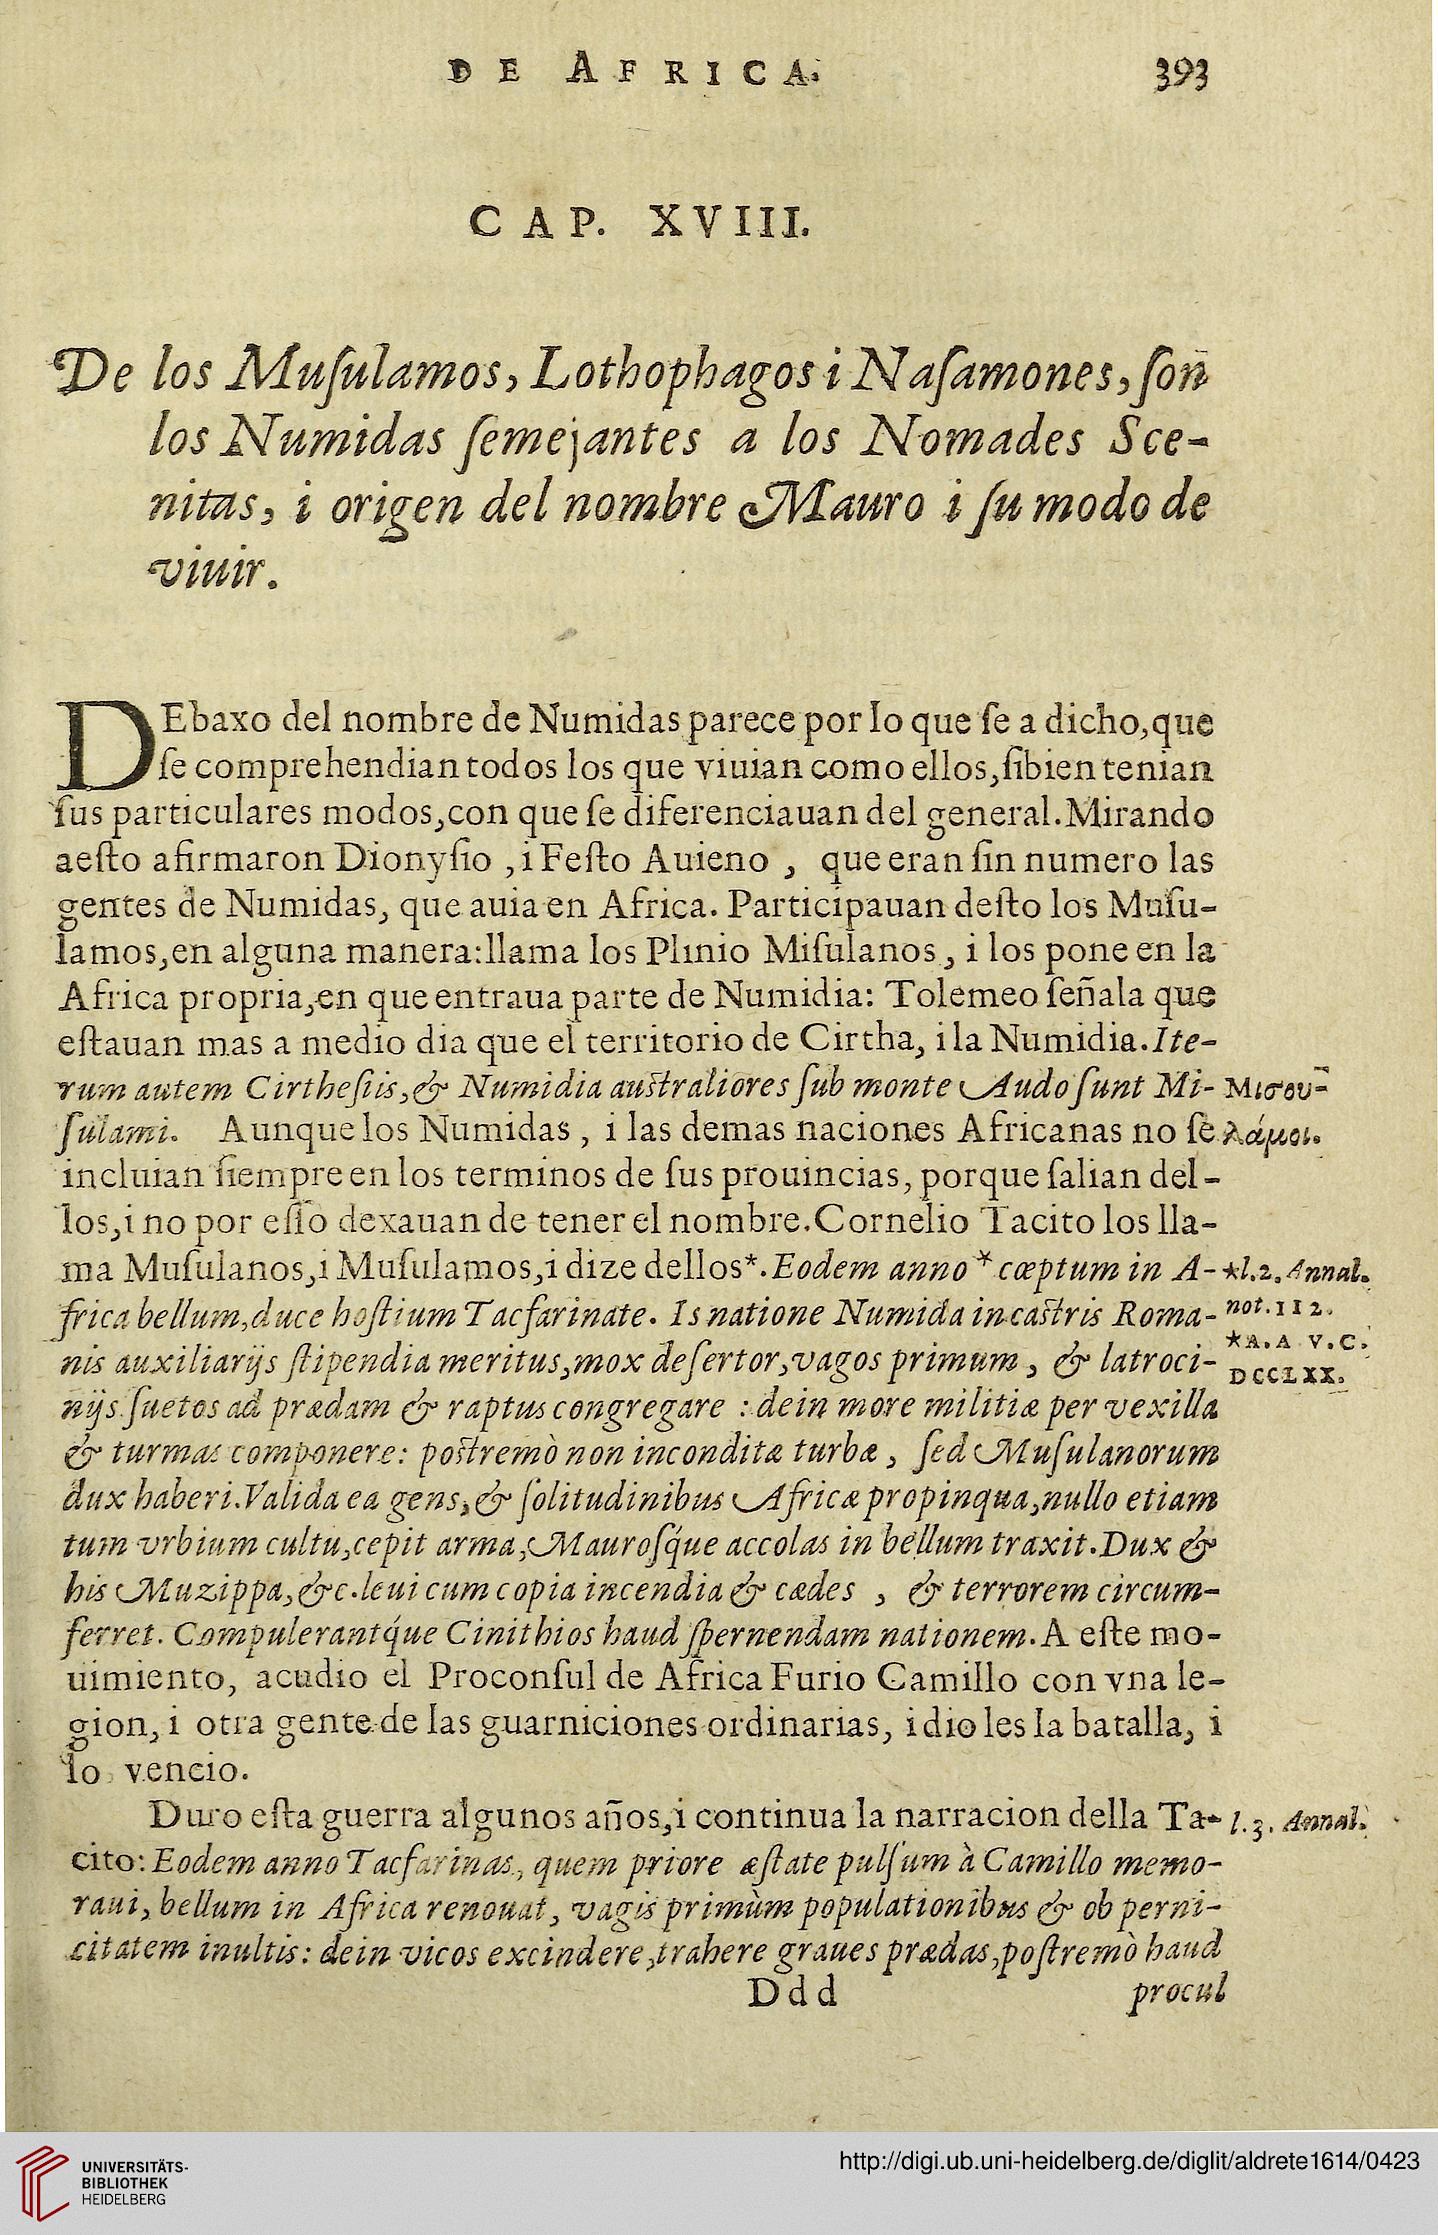 DE AFRICA. 393
CAP. XVIII.
De los Muſulamos, Lothophagos i Naſamones, ſon
los Numidas ſemejantes a los Nomades Sce-
nitas, i origen del nombre Mauro i ſu modo de
viuir.
DEbaxo del nombre de Numidas parece por lo que ſe a dicho, que
ſe comprehendian todos los que viuian como ellos, ſibien tenian
ſus particulares modos, con que ſe diferenciauan del general. Mirando
aeſto afirmaron Dionyſio, i Feſto Auieno, que eran ſin numero las
gentes de Numidas, que auia en Africa. Participauan deſto los Muſu-
lamos, en alguna manera: llama los Plinio Miſulanos, i los pone en la
Africa propria, en que entraua parte de Numidia: Tolemeo ſeñala que
eſtauan mas a medio dia que el territorio de Cirtha, i la Numidia. Ite-
rum autem Cirtheſiis, & Numidia auſtraliores ſub monte Audo ſunt Mi- Μισου-
ſulami. Aunque los Numidas, i las demas naciones Africanas no ſe λάμοι.
incluian ſiempre en los terminos de ſus prouincias, porque ſalian del-
los, i no por eſſo dexauan de tener el nombre. Cornelio Tacito los lla-
ma Muſulanos, i Muſulamos, i dize dellos*. Eodem anno * cœptum in A- *l.2. Annal.
frica bellum, duce hoſtium Tacfarinate. Is natione Numida in caſtris Roma- not. 112.
nis auxiliarijs ſtipendia meritus, mox deſertor, vagos primum, & latroci- *A. A V. C.
DCCLXX.
nijs ſuetos ad prædam & raptus congregare : dein more militiæ per vexilla
& turmas componere: poſtremò non inconditæ turbæ, ſed Muſulanorum
dux haberi. Valida ea gens, & ſolitudinibus Africæ propinqua, nullo etiam
tum vrbium cultu, cepit arma, Mauroſq́ue accolas in bellum traxit. Dux &
his Muzippa, &c. leui cum copia incendia & cædes, & terrorem circum-
ferret. Compulerantq́ue Cinithios haud ſpernendam nationem. A eſte mo-
uimiento, acudio el Proconſul de Africa Furio Camillo con vna le-
gion, i otra gente de las guarniciones ordinarias, i dio les la batalla, i
lo vencio.
Duro eſta guerra algunos años, i continua la narracion della Ta- l. 3. Annal.
cito: Eodem anno Tacfarinas, quem priore æſtate pulſum à Camillo memo-
raui, bellum in Africa renouat, vagis primùm populationibus & ob perni-
citatem inultis: dein vicos excindere, trahere graues prædas, poſtremò haud
Ddd procul
UNIVERSITÄTS-
BIBLIOTHEK
HEIDELBERG
http://digi.ub.uni-heidelberg.de/diglit/aldrete1614/0423